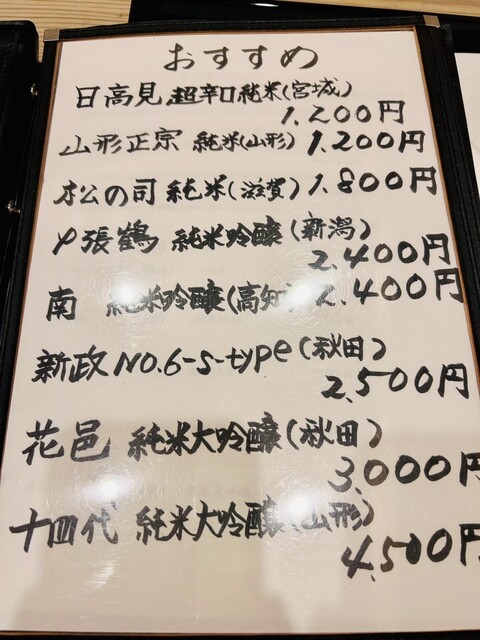 おすすめ
日高見 超辛口純米(宮城)
1,200円
山形正宗 純米(山形) 1,200円
松の司 純米(滋賀) 1,800円
〆張鶴 純米吟醸(新潟)
2,400円
南 純米吟醸(高知) 2,400円
新政NO.6-s-type(秋田)
2,500円
花邑 純米大吟醸(秋田)
3,000円
十四代 純米大吟醸(山形)
4,500円